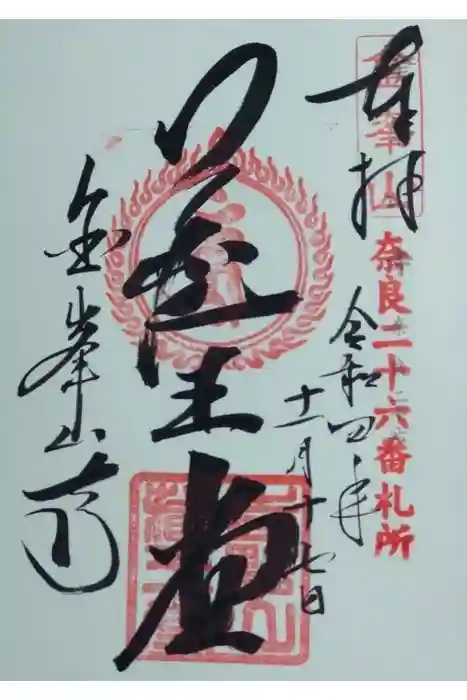 金峯山
奉拝
奈良二十六番札所
令和四年
十一月十七日
蔵王堂
金峯山寺